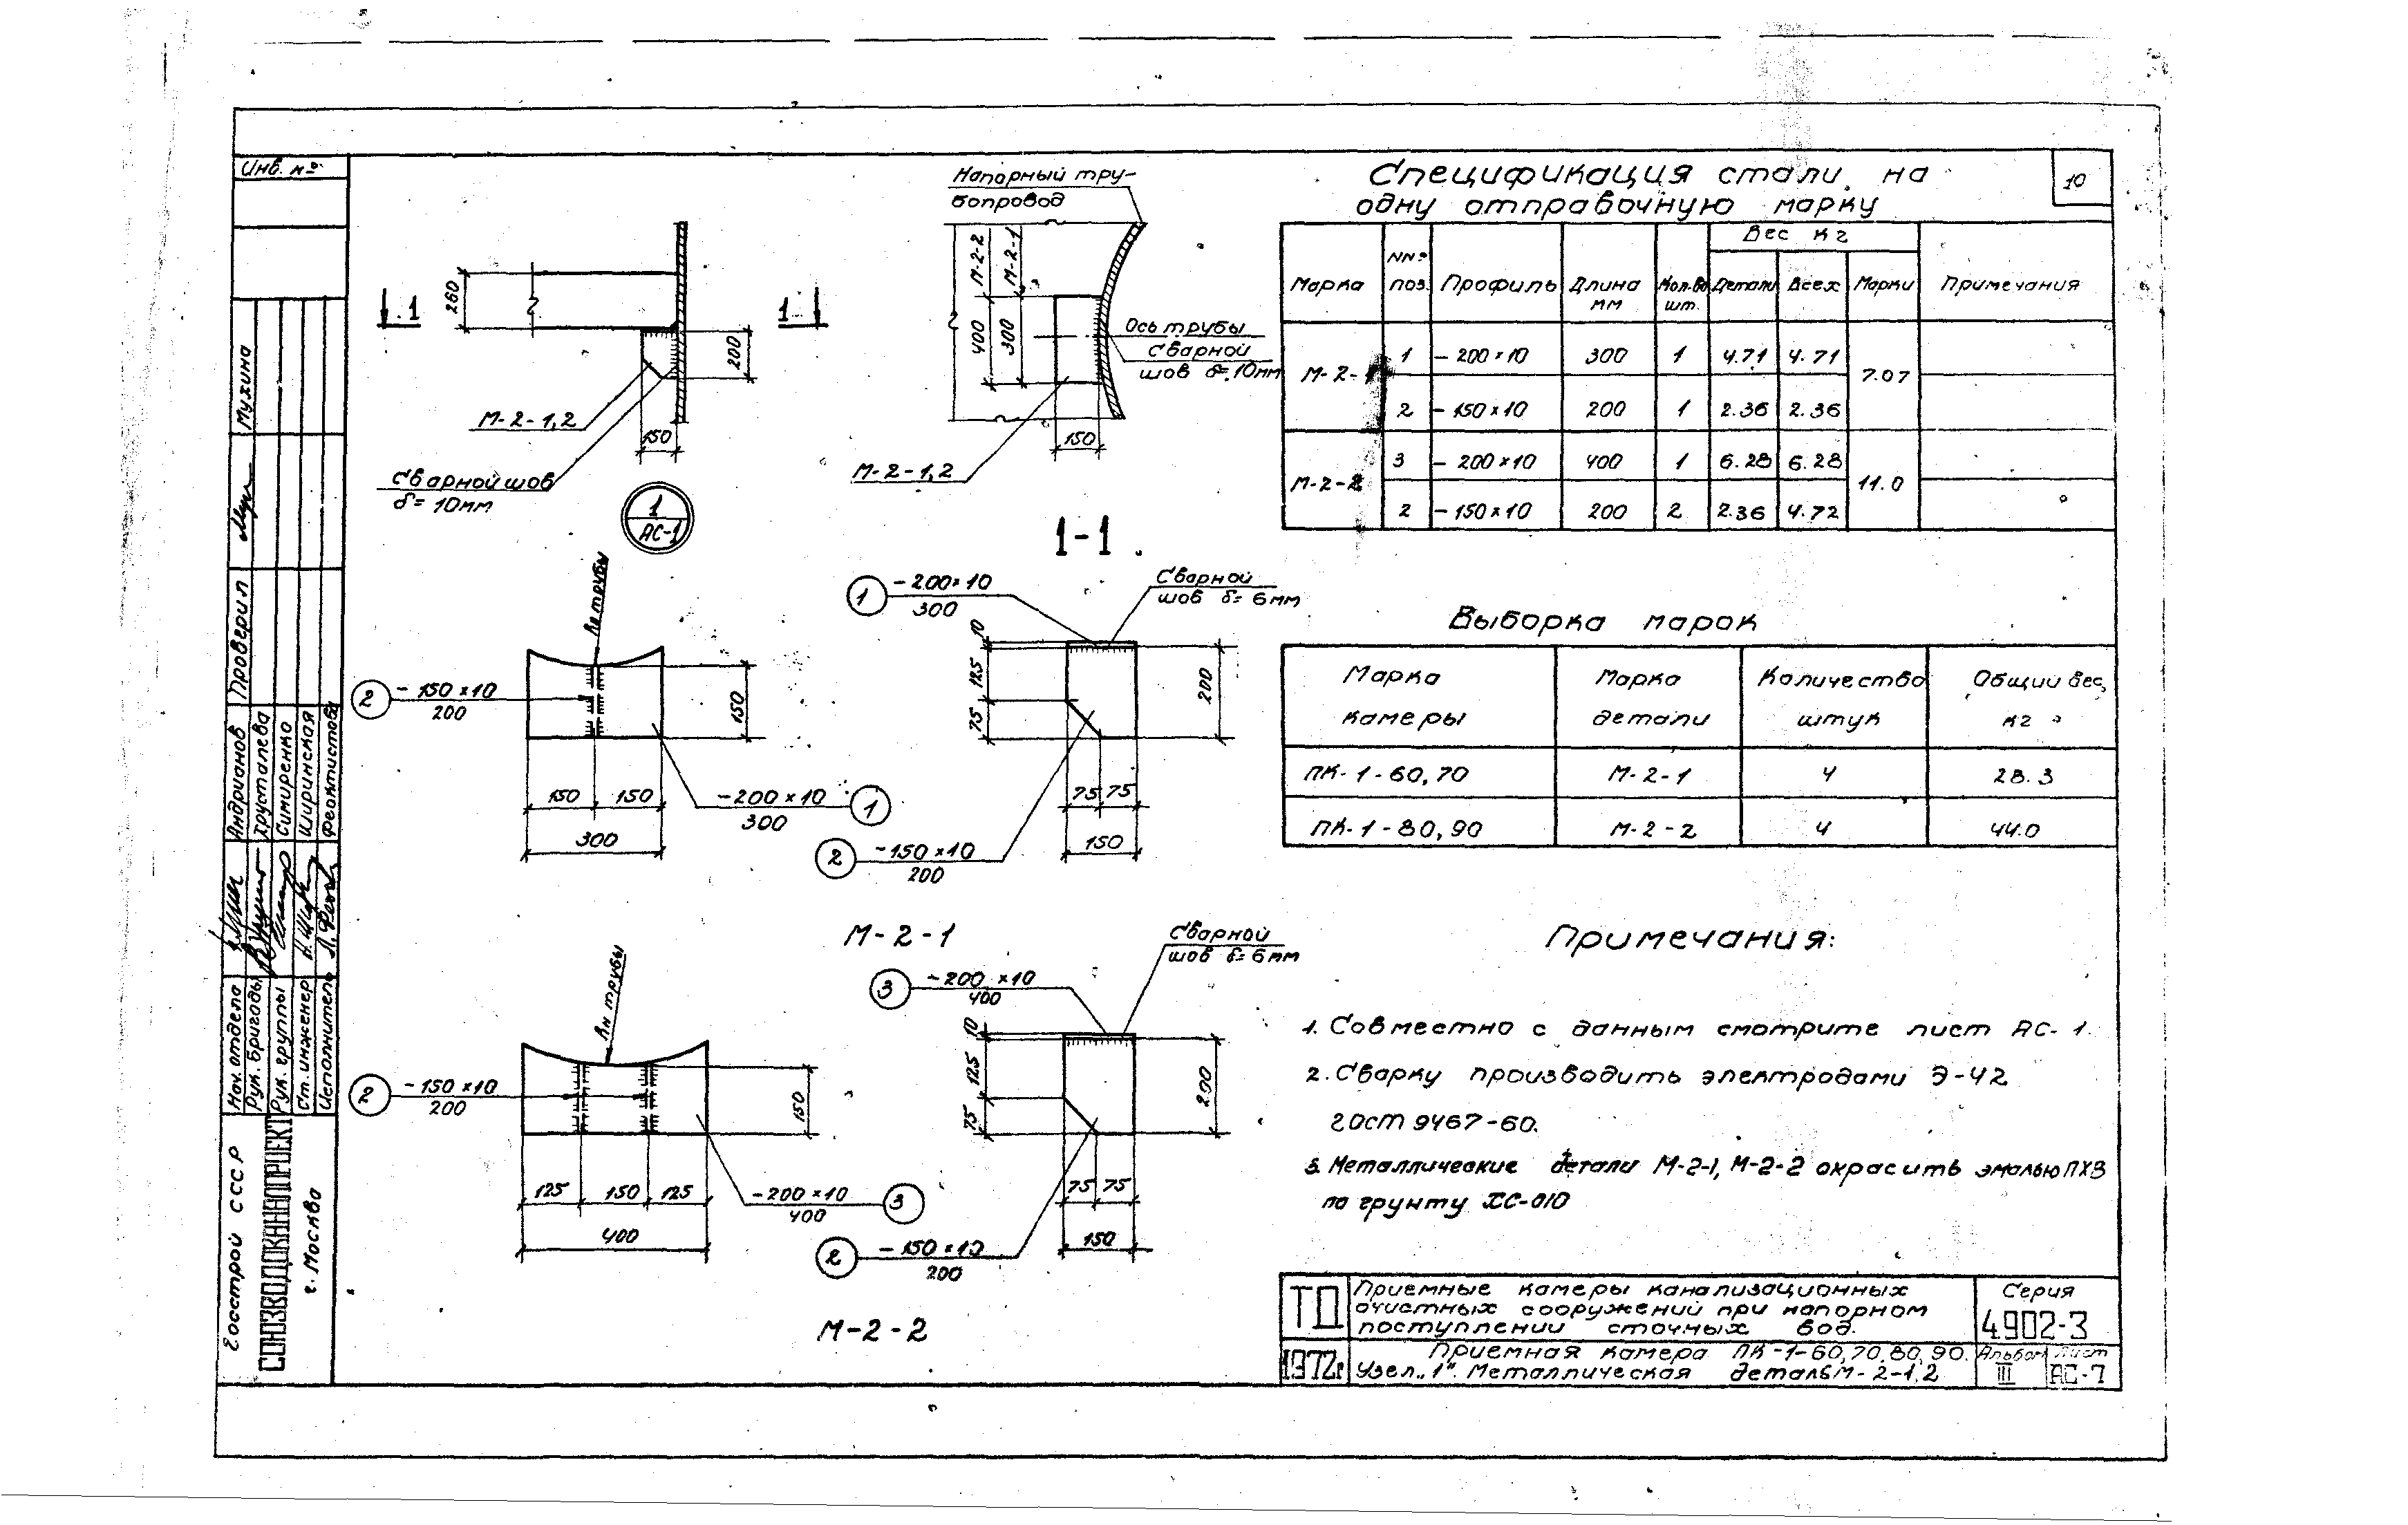 Инв. №
10
Напорный тру-
бопровод
М-2-2
М-2-1
400
300
Ось трубы
Сварной
шов δ=10мм
150
М-2-1,2
1-1
260
1
1
200
М-2-1,2
150
Сварной шов
δ= 10мм
1
АС-1
Спецификация стали на
одну отправочную марку
Марка
NN°
поз.
Профиль
Длина
мм
Кол.во
шт.
Вес кг
Детали
Всех
Марки
Примечания
М-2-1
1 -200×10 300 1 4.71 4.71
7.07
2 -150×10 200 1 2.36 2.36
М-2-2
3 -200×10 400 1 6.28 6.28
11.0
2 -150×10 200 2 2.36 4.72
Rн трубы
2
-150×10
200
150
150 150
300
-200×10
300
1
1
-200×10
300
Сварной
шов δ= 6мм
10
125
75
200
75 75
150
2
-150×10
200
М-2-1
Rн трубы
2
-150×10
200
150
125 150 125
400
-200×10
400
3
3
-200×10
400
Сварной
шов δ=6мм
10
125
75
200
75 75
150
2
-150×10
200
М-2-2
Выборка марок
Марка
камеры
Марка
детали
Количество
штук
Общий вес,
кг
ПК-1-60,70 М-2-1 4 28.3
ПК-1-80,90 М-2-2 4 44.0
Примечания:
1. Совместно с данным смотрите лист АС-1.
2. Сварку производить электродами Э-42
ГОСТ 9467-60.
3. Металлические детали М-2-1, М-2-2 окрасить эмалью ПХВ
по грунту ХС-010
ТД
Приемные камеры канализационных
очистных сооружений при напорном
поступлении сточных вод.
Серия
4.902-3
1972г
Приемная камера ПК-1-60,70,80,90.
Узел „1". Металлическая деталь М-2-1,2
Альбом
III
Лист
АС-7
Мухина
Проверил
Андрианов
Хрусталева
Симиренко
Ширинская
Феоктистова
Нач. отдела
Рук. бригады
Рук. группы
Ст. инженер
Исполнитель
Госстрой СССР
СОЮЗВОДОКАНАЛПРОЕКТ
г. Москва